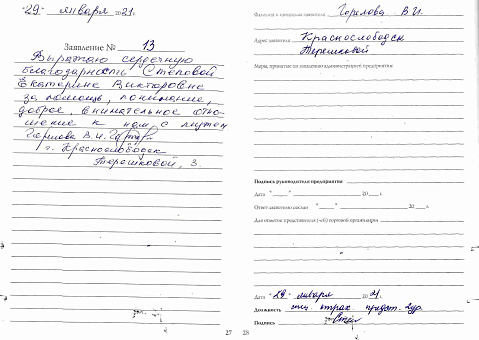 "29" января 2021г.
Заявление № 13
Выражаю сердечную
благодарность Степовой
Екатерине Викторовне
за помощь, понимание,
доброе, внимательное отно-
шение к нам,
Горелова В.И.
г. Краснослободск
Терешковой, 3.
27
Фамилия и инициалы заявителя Горелова В.И.
Адрес заявителя Краснослободск
Терешковой
Меры, принятые по заявлению администрацией предприятия
Подпись руководителя предприятия
Дата "___" 20 г.
Ответ заявителю послан "___" 20 г.
Для отметок представителя (-ей) торговой организации
Дата "29" января 2021г.
Должность
Подпись
28